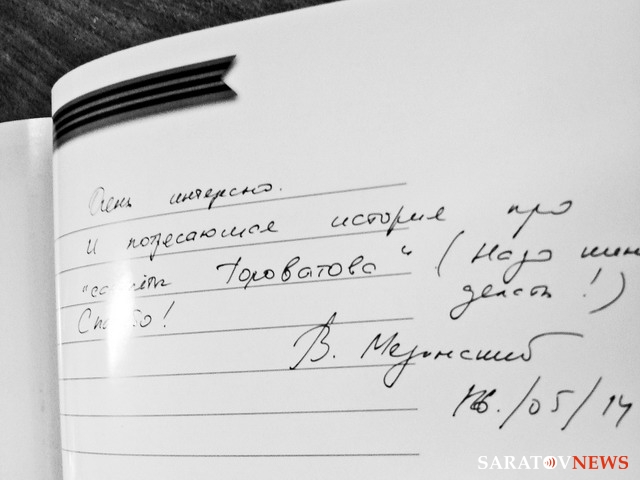 Очень интересно.
И потресающая история про
"самолёт Головатова" (Надо
делать!)
Спасибо!
В. Мединский
16./05/14
SARATOVNEWS